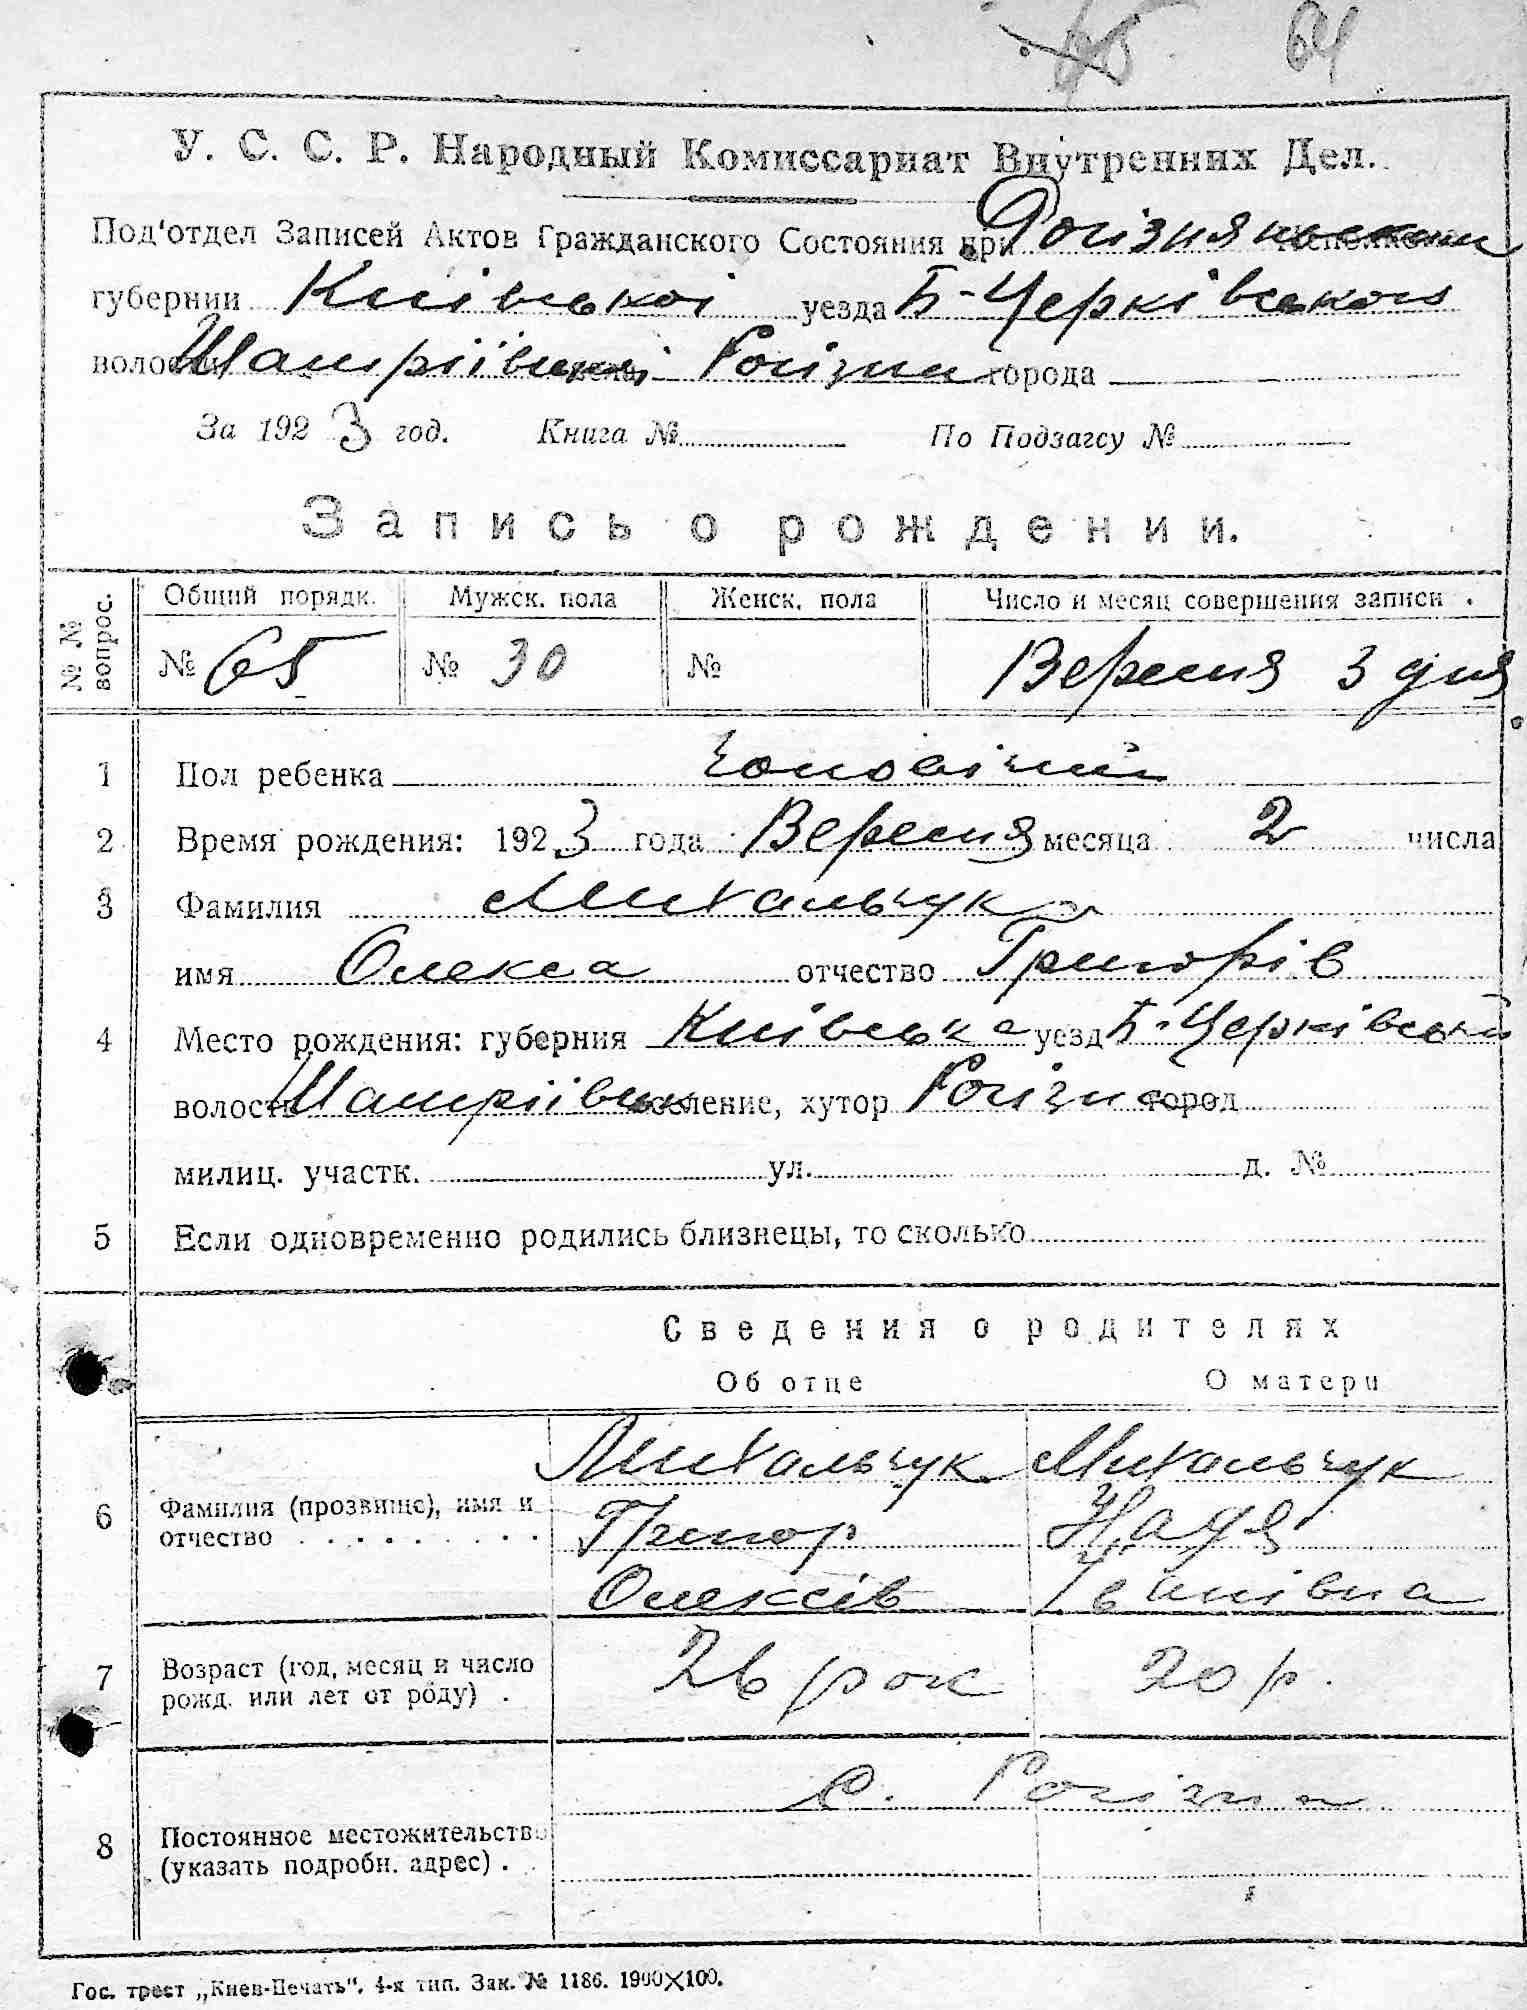 65 64
У. С. С. Р. Народный Комиссариат Внутренних Дел.
Под'отдел Записей Актов Гражданского Состояния при
губернии Київської уезда Б-Церківського
волости Шамраївської села Рогізни города
За 1923 год. Книга № По Подзагсу №
Запись о рождении.
№ № вопрос. Общий порядк. Мужск. пола Женск. пола Число и месяц совершения записи
№ 65 № 30 № Вересня 3 дня
1 Пол ребенка чоловічий
2 Время рождения: 1923 года Вересня месяца 2 числа
3 Фамилия Михальчук
имя Олекса отчество Григорів
4 Место рождения: губерния Київська уезд Б-Церківський
волость селение, хутор Рогізна город
милиц. участк. ул. д. №
5 Если одновременно родились близнецы, то сколько
Сведения о родителях
Об отце О матери
Михальчук Михальчук
6 Фамилия (прозвище), имя и отчество Григор Надя
Олексів Іванівна
7 Возраст (год, месяц и число рожд. или лет от роду) . 26 рок 20 р.
с. Рогізна
8 Постоянное местожительство (указать подробн. адрес) .
Гос. трест „Киев-Печать". 4-я тип. Зак. № 1186. 1900×100.